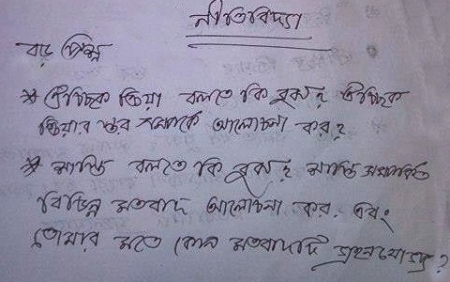 নীতিবিদ্যা
বড় প্রশ্ন
* ঐচ্ছিক ক্রিয়া বলতে কি বুঝ? ঐচ্ছিক
ক্রিয়ার স্তর সম্পর্কে আলোচনা কর?
* শাস্তি বলতে কি বুঝ? শাস্তি সম্পর্কিত
বিভিন্ন মতবাদ আলোচনা কর। এবং
তোমার মতে কোন মতবাদটি গ্রহনযোগ্য?